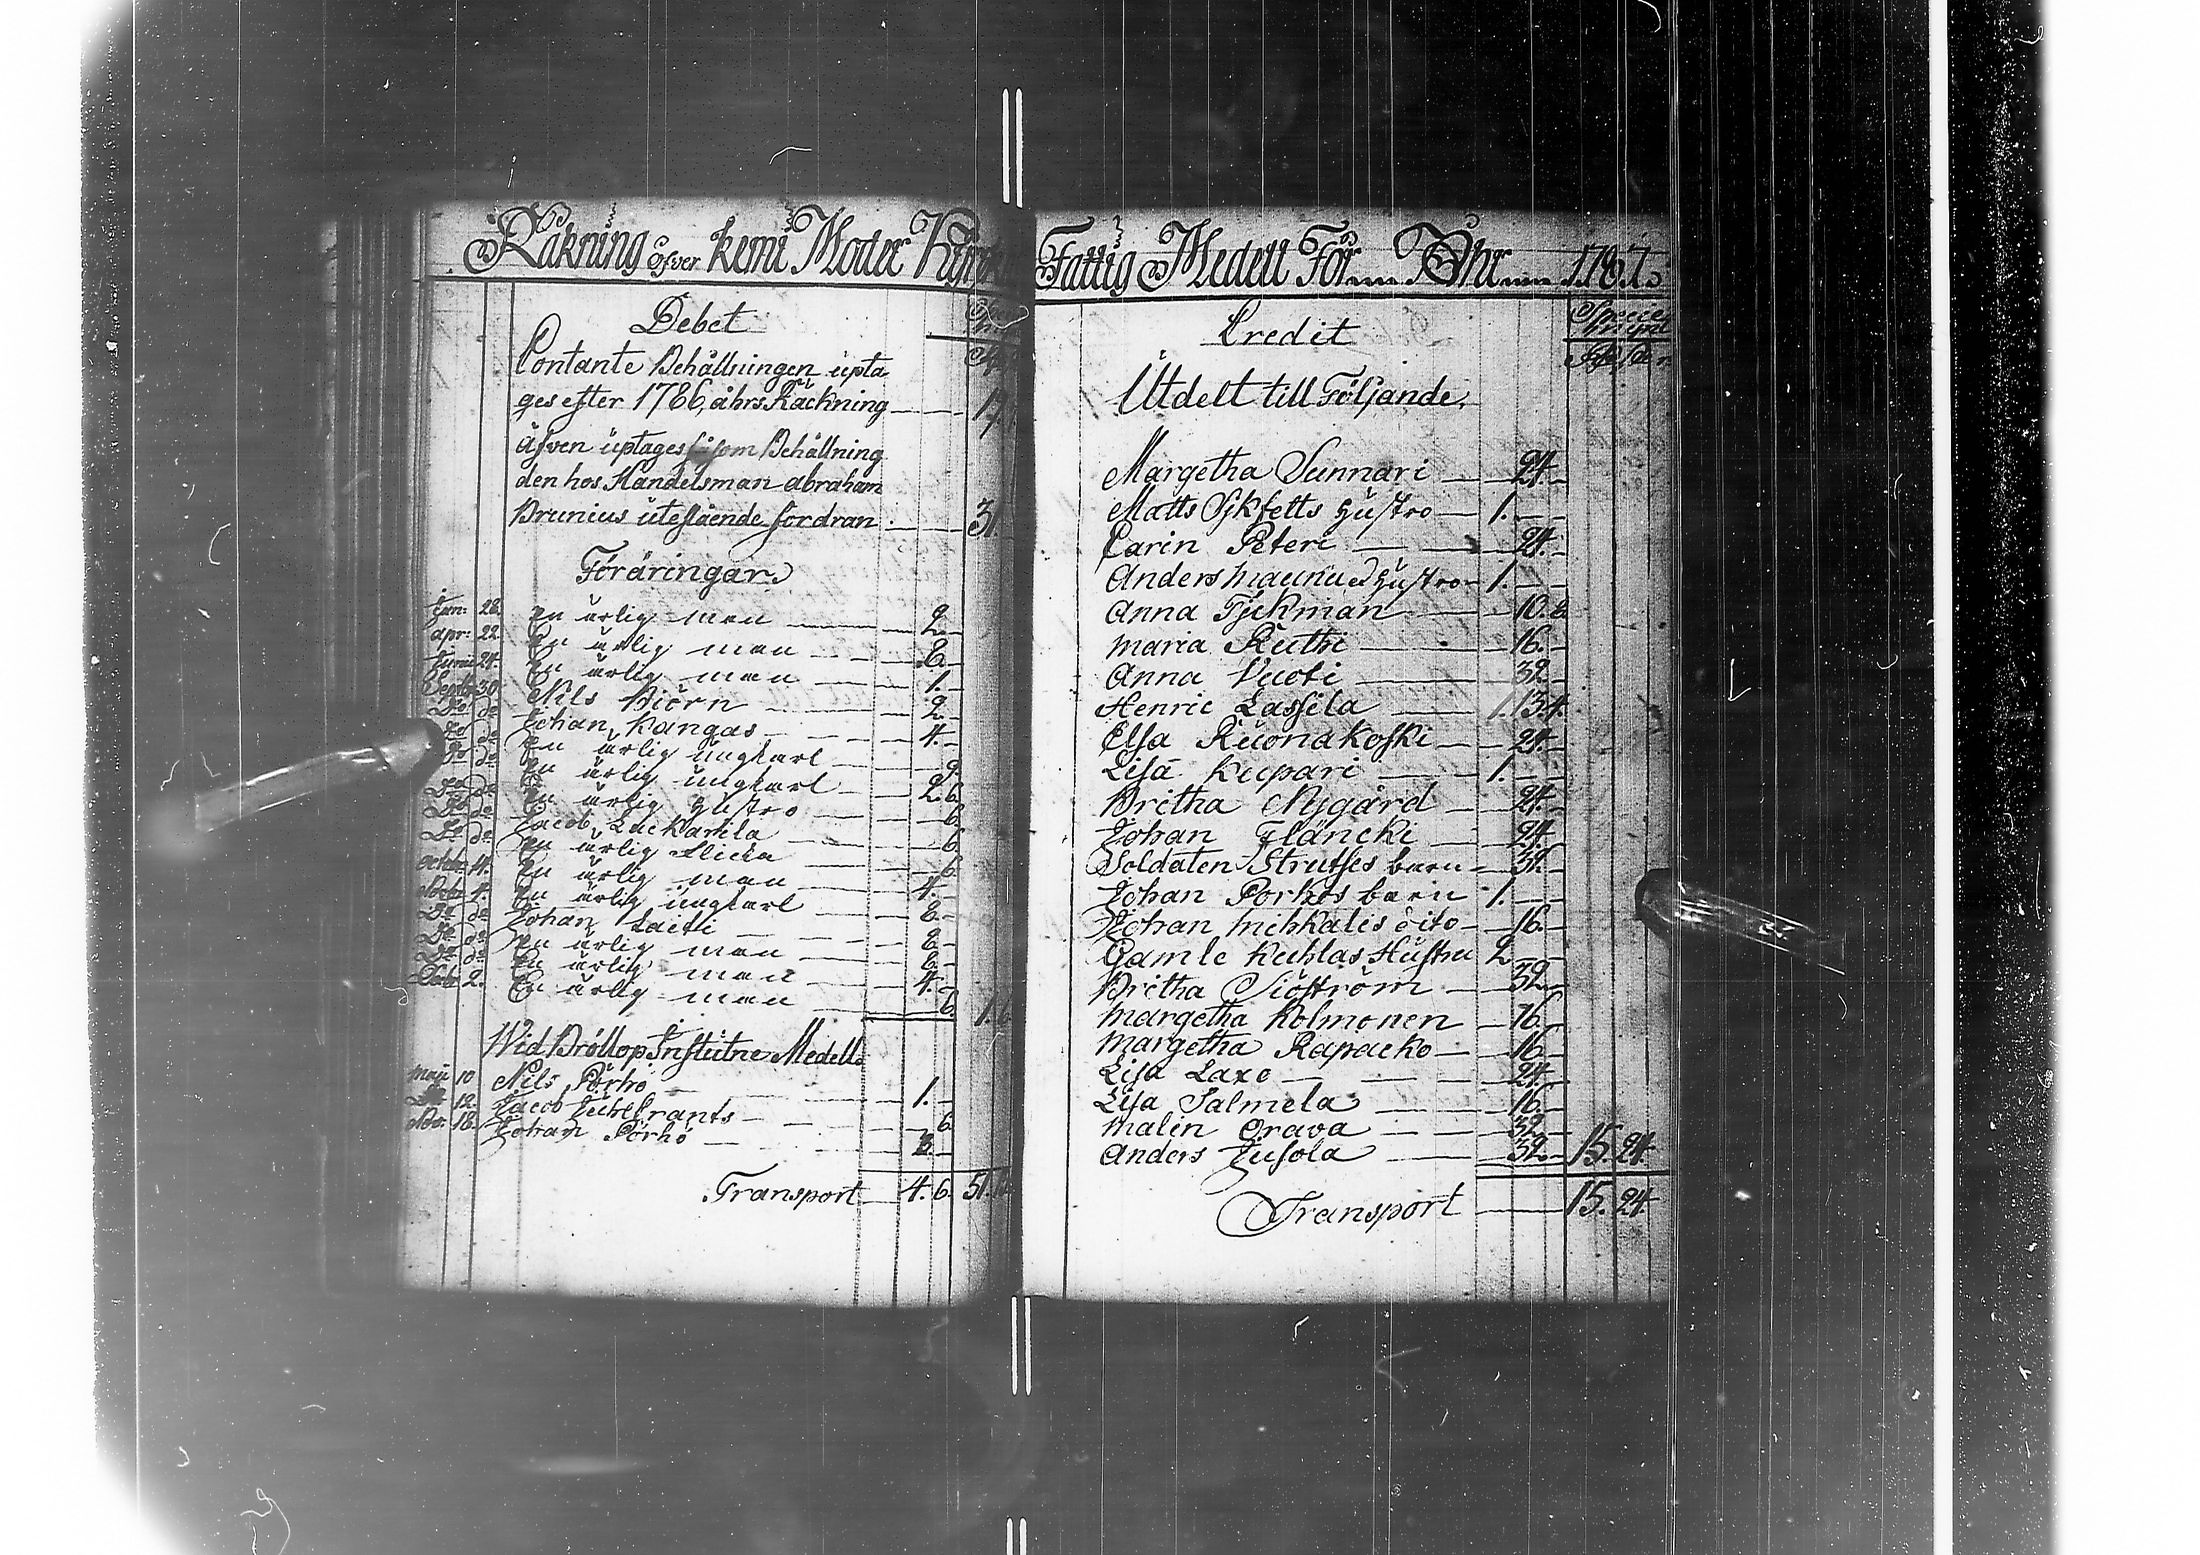 Räkning öfver Kemi Moder Kyrko
Debet
Contante Behållningen upta
ges efter 1786 åhrs Räckning 17
äfven uptages såsom Behållning
den hos Handelsman Abraham
Brunius utestående fordran 31.
Föräringar
Jan: 28. En ärlig man 2.
apr: 22 En ärlig man 8.
Junii 24. En ärlig man 1.
Septbr 30 Nils Biörn 2.
Do do Johan Kangas 4.
Do do En ärlig ungkarl
Do do En ärlig ungkarl 2.6
Do do En ärlig Hustro 6.
Do do Jacob Lackarila 6.
Do do En ärlig flicka 6.
octobr 14. En ärlig man 4.
Nobr 4. En ärlig ungkarl 8.
Do do Johan Laiti 8.
Do do En ärlig man 8.
Do do En ärlig man 4.
Debr 2. En ärlig man 6. 1.
Wid Bröllop Instutne Medell
Maji 10 Nils Pörhö 1.
Do 12. Jacob 6.
Nov. 18. Johan Pörhö 8.
Transport 4.6. 51.
Fattig Medell För Åhr 1787.
Credit
Specie
mynt
Utdelt till Följande.
Margetha Sunnari 24.
Matts Sjkfetts Hustro 1.
Carin Peteri 24.
Anders Hustro 1.
Anna Fyckman 10.8
Maria Ruthi 16.
Anna Vuoti 32
Henric Lassila 1.13.4.
Elsa Ruonakoski 24.
Lisa Kupari 1.
Britha Nygård 24.
Johan Fläncki 24.
Soldaten Strutses barn 32.
Johan Porkos barn 1.
Johan Mihkalis dito 16.
Gamle Kuhlas Hustru 2.
Britha Siöström 32.
Margetha Kolmonen 16.
Margetha Rapacko 16.
Lisa Laxo 24.
Lisa Salmela 16.
Malin Orava 32.
Anders Jusola 32. 15.24.
Transport 15.24.